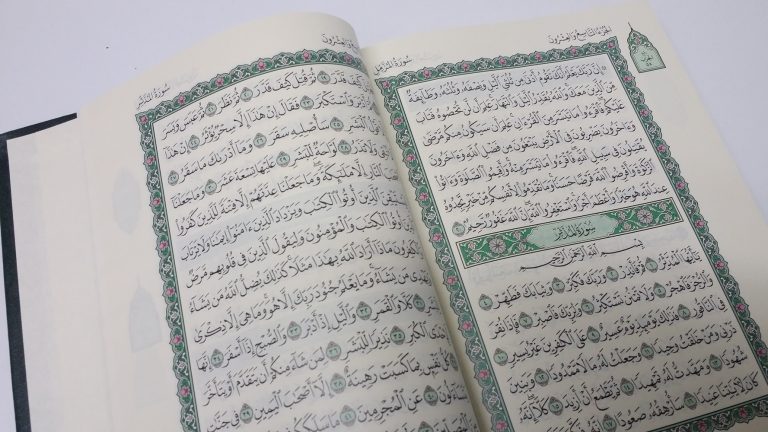 الجزء التاسع والعشرون
سورة المزمل
إن ربك يعلم أنك تقوم أدنى من ثلثي اليل ونصفه وثلثه وطائفة
من الذين معك والله يقدر اليل والنهار علم أن لن تحصوه فتاب
عليكم فاقرءوا ما تيسر من القرءان علم أن سيكون منكم مرضى
وءاخرون يضربون في الأرض يبتغون من فضل الله وءاخرون
يقتلون في سبيل الله فاقرءوا ما تيسر منه وأقيموا الصلوة وءاتوا
الزكوة وأقرضوا الله قرضا حسنا وما تقدموا لأنفسكم من خير تجدوه
عند الله هو خيرا وأعظم أجرا واستغفروا الله إن الله غفور رحيم ٢٠
سورة المدثر
بسم الله الرحمن الرحيم
يأيها المدثر ١ قم فأنذر ٢ وربك فكبر ٣ وثيابك فطهر ٤
والرجز فاهجر ٥ ولا تمنن تستكثر ٦ ولربك فاصبر ٧ فإذا نقر
في الناقور ٨ فذلك يومئذ يوم عسير ٩ على الكفرين غير يسير ١٠
ذرني ومن خلقت وحيدا ١١ وجعلت له مالا ممدودا ١٢ وبنين
شهودا ١٣ ومهدت له تمهيدا ١٤ ثم يطمع أن أزيد ١٥ كلا إنه
كان لأيتنا عنيدا ١٦ سأرهقه صعودا ١٧
والعشرون
سورة المدثر
كيف قدر ١٩ ثم قتل كيف قدر ٢٠ ثم نظر ٢١ ثم عبس وبسر
أدبر واستكبر ٢٣ فقال إن هذا إلا سحر يؤثر ٢٤ إن هذا
قول البشر ٢٥ سأصليه سقر ٢٦ وما أدرىك ما سقر ٢٧
ولا تذر ٢٨ لواحة للبشر ٢٩ عليها تسعة عشر ٣٠ وما جعلنا
أصحب النار إلا ملئكة وما جعلنا عدتهم إلا فتنة للذين كفروا
ليستيقن الذين أوتوا الكتب ويزداد الذين ءامنوا إيمنا ولا يرتاب
الذين أوتوا الكتب والمؤمنون وليقول الذين في قلوبهم مرض
والكفرون ماذا أراد الله بهذا مثلا كذلك يضل الله من يشاء
ويهدي من يشاء وما يعلم جنود ربك إلا هو وما هي إلا ذكرى
للبشر ٣١ كلا والقمر ٣٢ واليل إذ أدبر ٣٣ والصبح إذا أسفر ٣٤ إنها
لإحدى الكبر ٣٥ نذيرا للبشر ٣٦ لمن شاء منكم أن يتقدم أو يتأخر
كل نفس بما كسبت رهينة ٣٨ إلا أصحب اليمين ٣٩ في جنت
يتساءلون ٤٠ عن المجرمين ٤١ ما سلككم